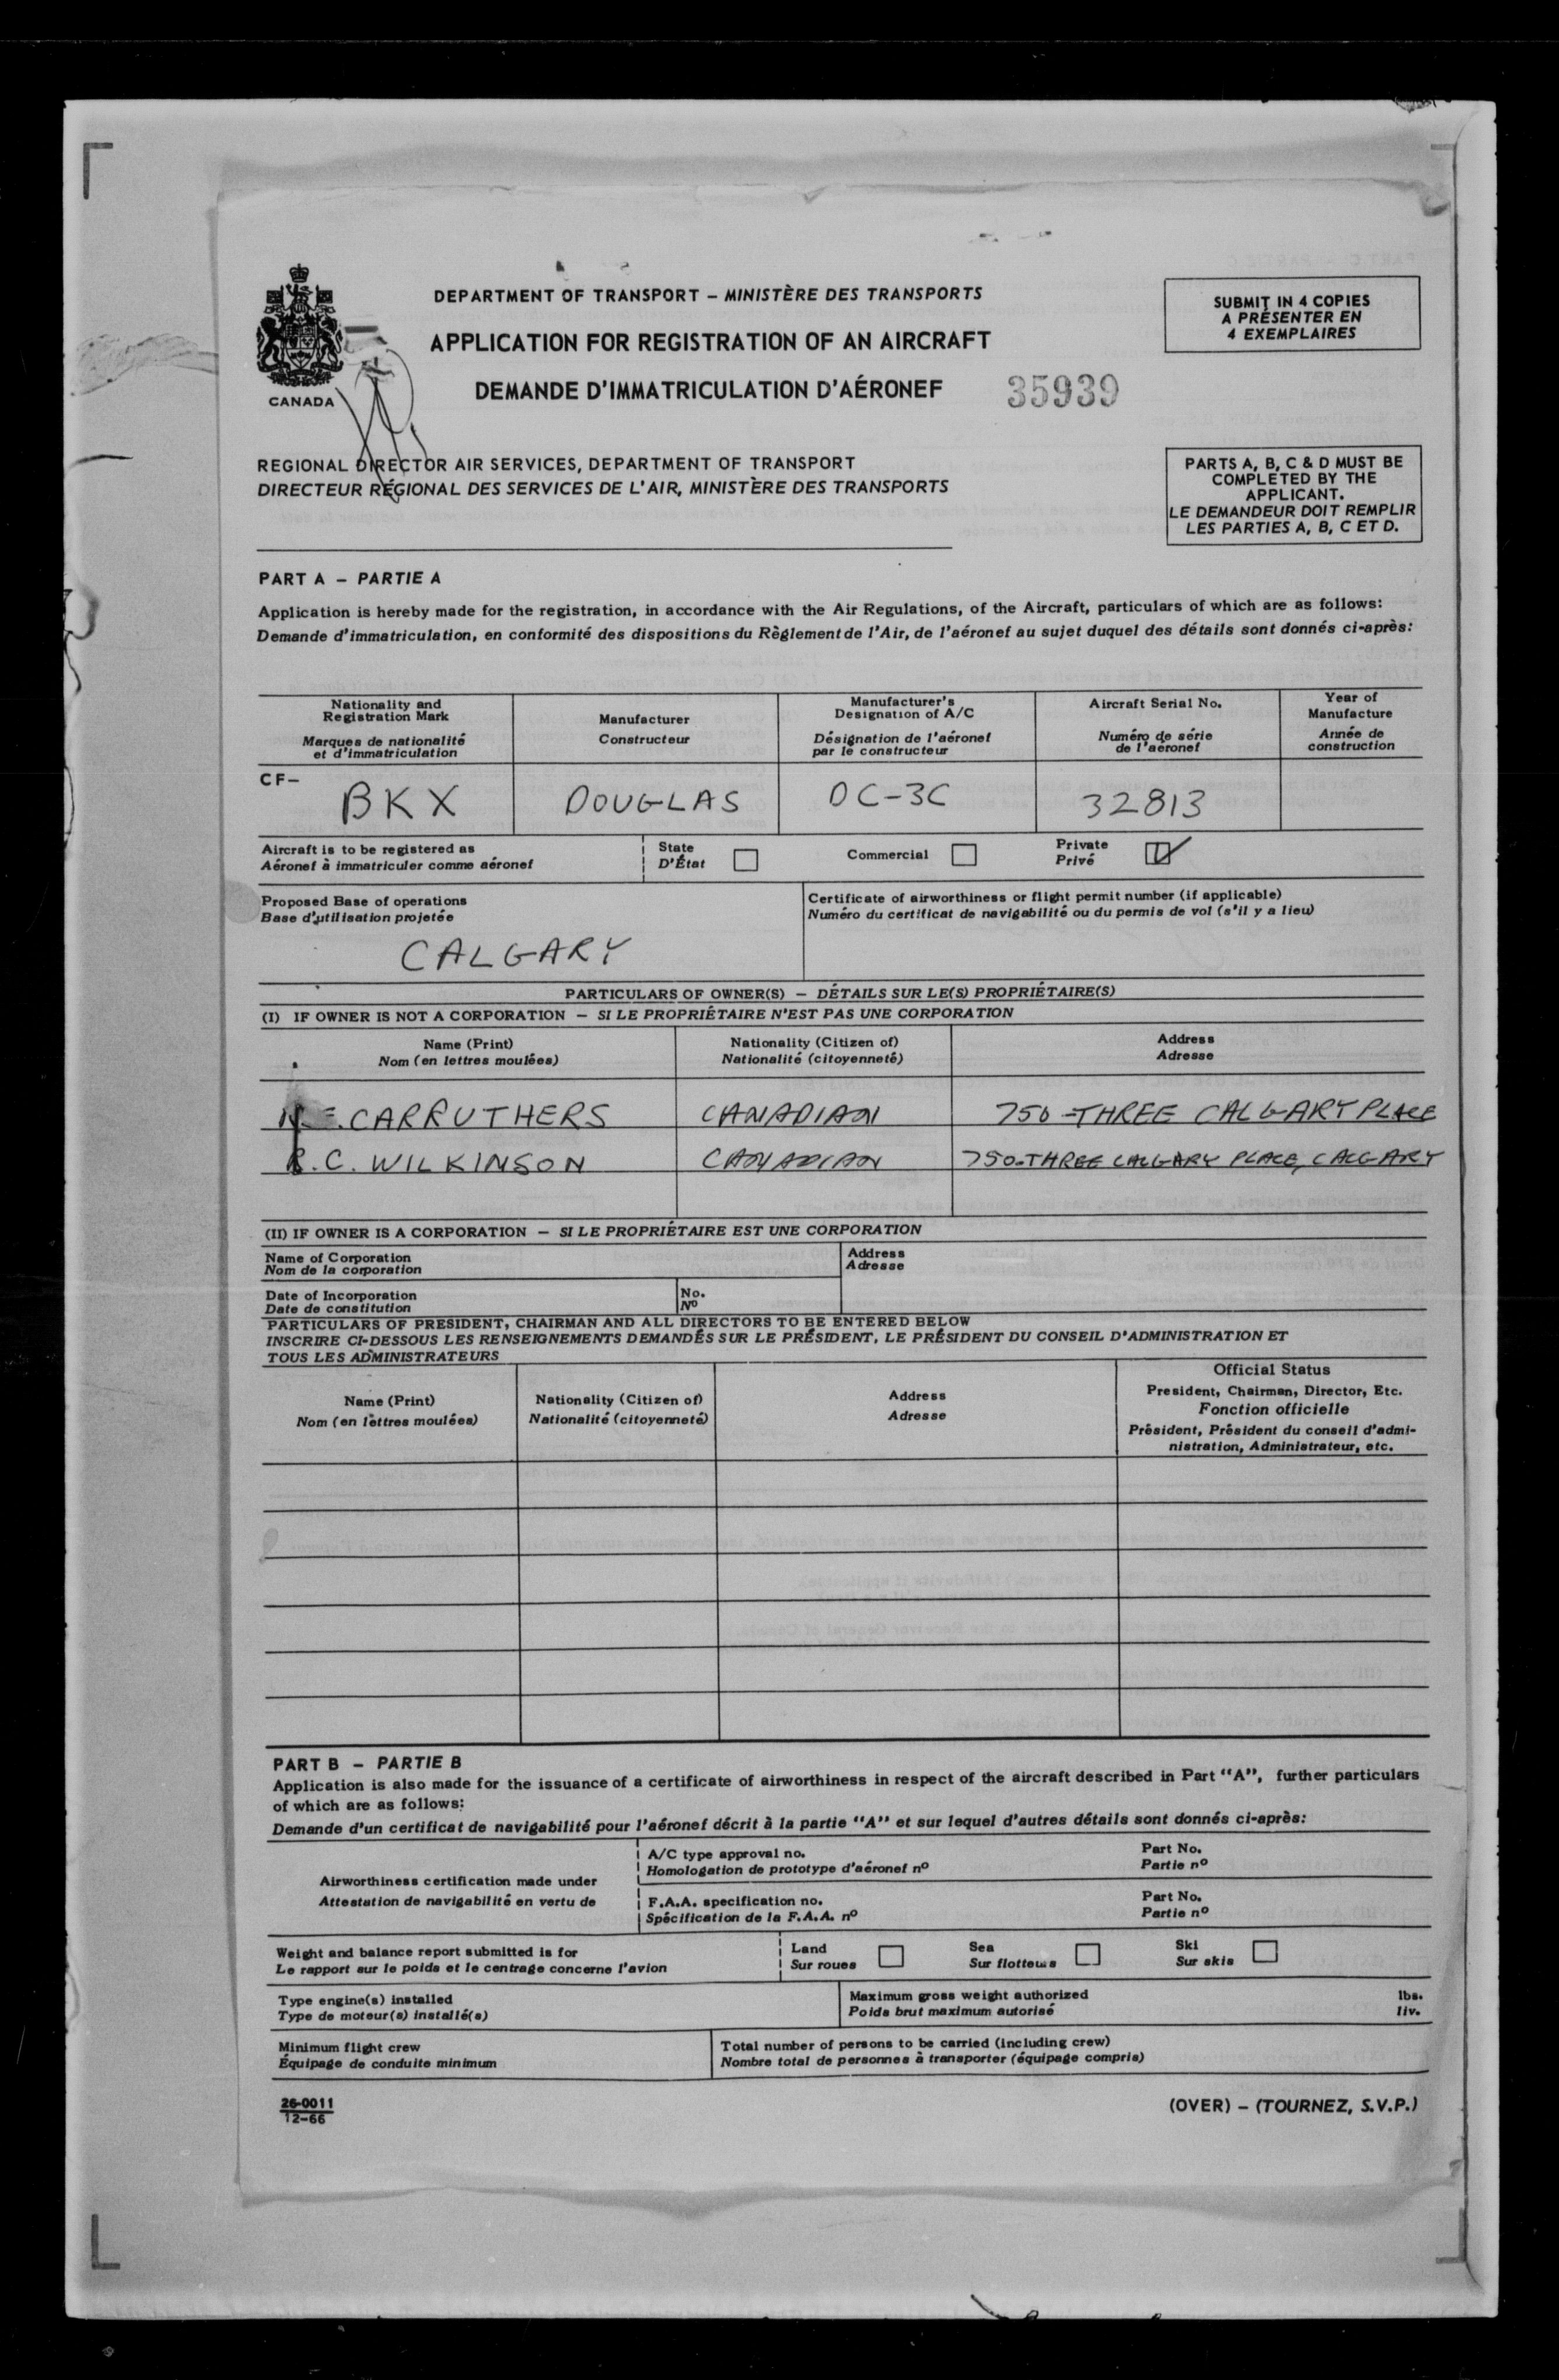 DEPARTMENT OF TRANSPORT – MINISTÈRE DES TRANSPORTS
APPLICATION FOR REGISTRATION OF AN AIRCRAFT
DEMANDE D'IMMATRICULATION D'AÉRONEF
35939
CANADA
SUBMIT IN 4 COPIES
A PRÉSENTER EN
4 EXEMPLAIRES
REGIONAL DIRECTOR AIR SERVICES, DEPARTMENT OF TRANSPORT
DIRECTEUR RÉGIONAL DES SERVICES DE L'AIR, MINISTÈRE DES TRANSPORTS
PARTS A, B, C & D MUST BE
COMPLETED BY THE
APPLICANT.
LE DEMANDEUR DOIT REMPLIR
LES PARTIES A, B, C ET D.
PART A – PARTIE A
Application is hereby made for the registration, in accordance with the Air Regulations, of the Aircraft, particulars of which are as follows:
Demande d'immatriculation, en conformité des dispositions du Règlement de l'Air, de l'aéronef au sujet duquel des détails sont donnés ci-après:
Nationality and
Registration Mark
Marques de nationalité
et d'immatriculation
Manufacturer
Constructeur
Manufacturer's
Designation of A/C
Désignation de l'aéronef
par le constructeur
Aircraft Serial No.
Numéro de série
de l'aéronef
Year of
Manufacture
Année de
construction
CF–
BKX
DOUGLAS
DC-3C
32813
Aircraft is to be registered as
Aéronef à immatriculer comme aéronef
State
D'État
Commercial
Private
Privé
Proposed Base of operations
Base d'utilisation projetée
CALGARY
Certificate of airworthiness or flight permit number (if applicable)
Numéro du certificat de navigabilité ou du permis de vol (s'il y a lieu)
PARTICULARS OF OWNER(S) – DÉTAILS SUR LE(S) PROPRIÉTAIRE(S)
(I) IF OWNER IS NOT A CORPORATION – SI LE PROPRIÉTAIRE N'EST PAS UNE CORPORATION
Name (Print)
Nom (en lettres moulées)
Nationality (Citizen of)
Nationalité (citoyenneté)
Address
Adresse
CARRUTHERS CANADIAN 750-THREE CALGARY PLACE
R.C. WILKINSON CANADIAN 750-THREE CALGARY PLACE, CALGARY
(II) IF OWNER IS A CORPORATION – SI LE PROPRIÉTAIRE EST UNE CORPORATION
Name of Corporation
Nom de la corporation
Address
Adresse
Date of Incorporation
Date de constitution
No.
Nº
PARTICULARS OF PRESIDENT, CHAIRMAN AND ALL DIRECTORS TO BE ENTERED BELOW
INSCRIRE CI-DESSOUS LES RENSEIGNEMENTS DEMANDÉS SUR LE PRÉSIDENT, LE PRÉSIDENT DU CONSEIL D'ADMINISTRATION ET
TOUS LES ADMINISTRATEURS
Name (Print)
Nom (en lettres moulées)
Nationality (Citizen of)
Nationalité (citoyenneté)
Address
Adresse
Official Status
President, Chairman, Director, Etc.
Fonction officielle
Président, Président du conseil d'admi-
nistration, Administrateur, etc.
PART B – PARTIE B
Application is also made for the issuance of a certificate of airworthiness in respect of the aircraft described in Part "A", further particulars
of which are as follows:
Demande d'un certificat de navigabilité pour l'aéronef décrit à la partie "A" et sur lequel d'autres détails sont donnés ci-après:
Airworthiness certification made under
Attestation de navigabilité en vertu de
A/C type approval no.
Homologation de prototype d'aéronef nº
Part No.
Partie nº
F.A.A. specification no.
Spécification de la F.A.A. nº
Part No.
Partie nº
Weight and balance report submitted is for
Le rapport sur le poids et le centrage concerne l'avion
Land
Sur roues
Sea
Sur flotteurs
Ski
Sur skis
Type engine(s) installed
Type de moteur(s) installé(s)
Maximum gross weight authorized
Poids brut maximum autorisé
lbs.
liv.
Minimum flight crew
Équipage de conduite minimum
Total number of persons to be carried (including crew)
Nombre total de personnes à transporter (équipage compris)
26-0011
12-66
(OVER) – (TOURNEZ, S.V.P.)